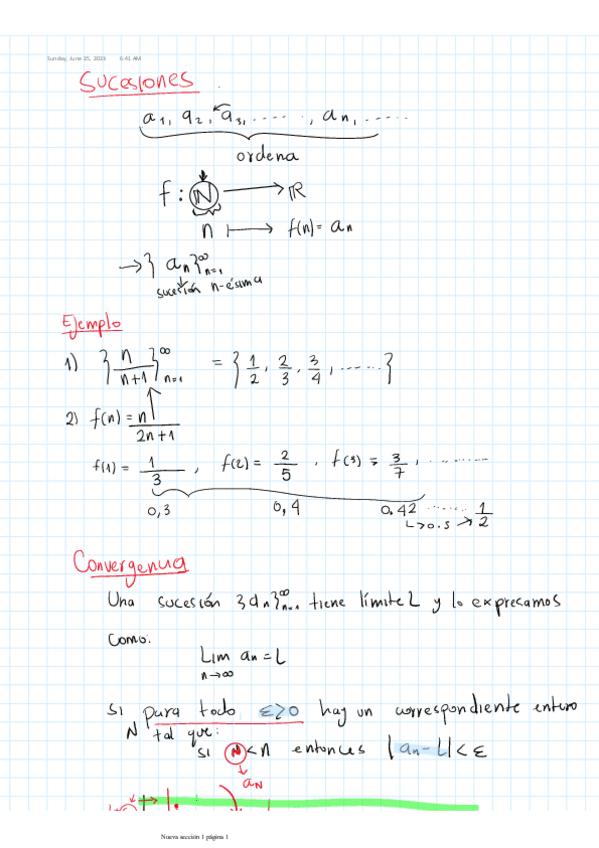 Sunday, June 25, 2023 6:41 AM
Sucesiones
a1, a2, a3, ......, an, .....
ordena
f : ℕ → ℝ
n ↦ f(n) = an
→ { an }∞ n=1
sucesión n-ésima
Ejemplo
1) { n/(n+1) }∞ n=1 = { 1/2, 2/3, 3/4, ...... }
2) f(n) = n/(2n+1)
f(1) = 1/3, f(2) = 2/5, f(3) = 3/7, ..........
0,3 0,4 0.42 ...... 1/2
↳ 0.5 →
Convergencia
Una sucesión {an}∞ n=1 tiene límite L y lo expresamos
Como:
Lim an = L
n→∞
Si para todo ε>0 hay un correspondiente entero
N tal que:
si N < n entonces |an - L| < ε
aN
Nueva sección 1 página 1